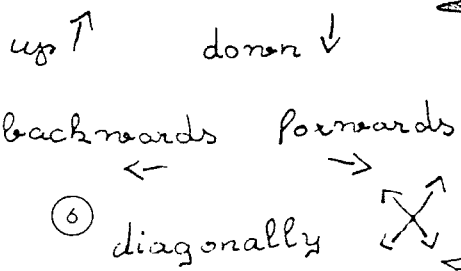 up ↑ down ↓
backwards forwards
← →
6 diagonally